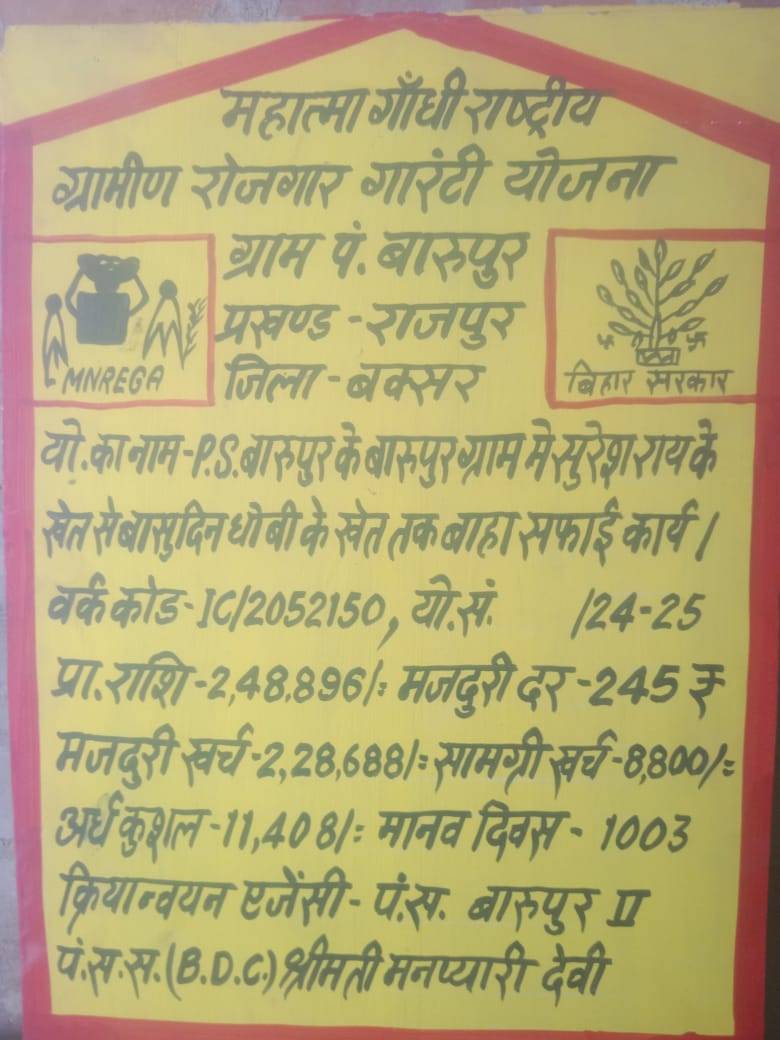 महात्मा गाँधी राष्ट्रीय
ग्रामीण रोजगार गारंटी योजना
ग्राम पं. बारुपुर
प्रखण्ड - राजपुर
जिला - बक्सर
MNREGA
बिहार सरकार
यो. का नाम - P.S. बारुपुर के बारुपुर ग्राम मे सुरेश राय के
खेत से बासुदिन धोबी के खेत तक बाहा सफाई कार्य /
वर्क कोड - IC/2052150, यो.सं. /24-25
प्रा. राशि - 2,48,896/= मजदुरी दर - 245 ₹
मजदुरी खर्च - 2,28,688/= सामग्री खर्च - 8,800/=
अर्ध कुशल - 11,408/= मानव दिवस - 1003
क्रियान्वयन एजेंसी - पं.स. बारुपुर II
पं.स.स. (B.D.C.) श्रीमती मनप्यारी देवी